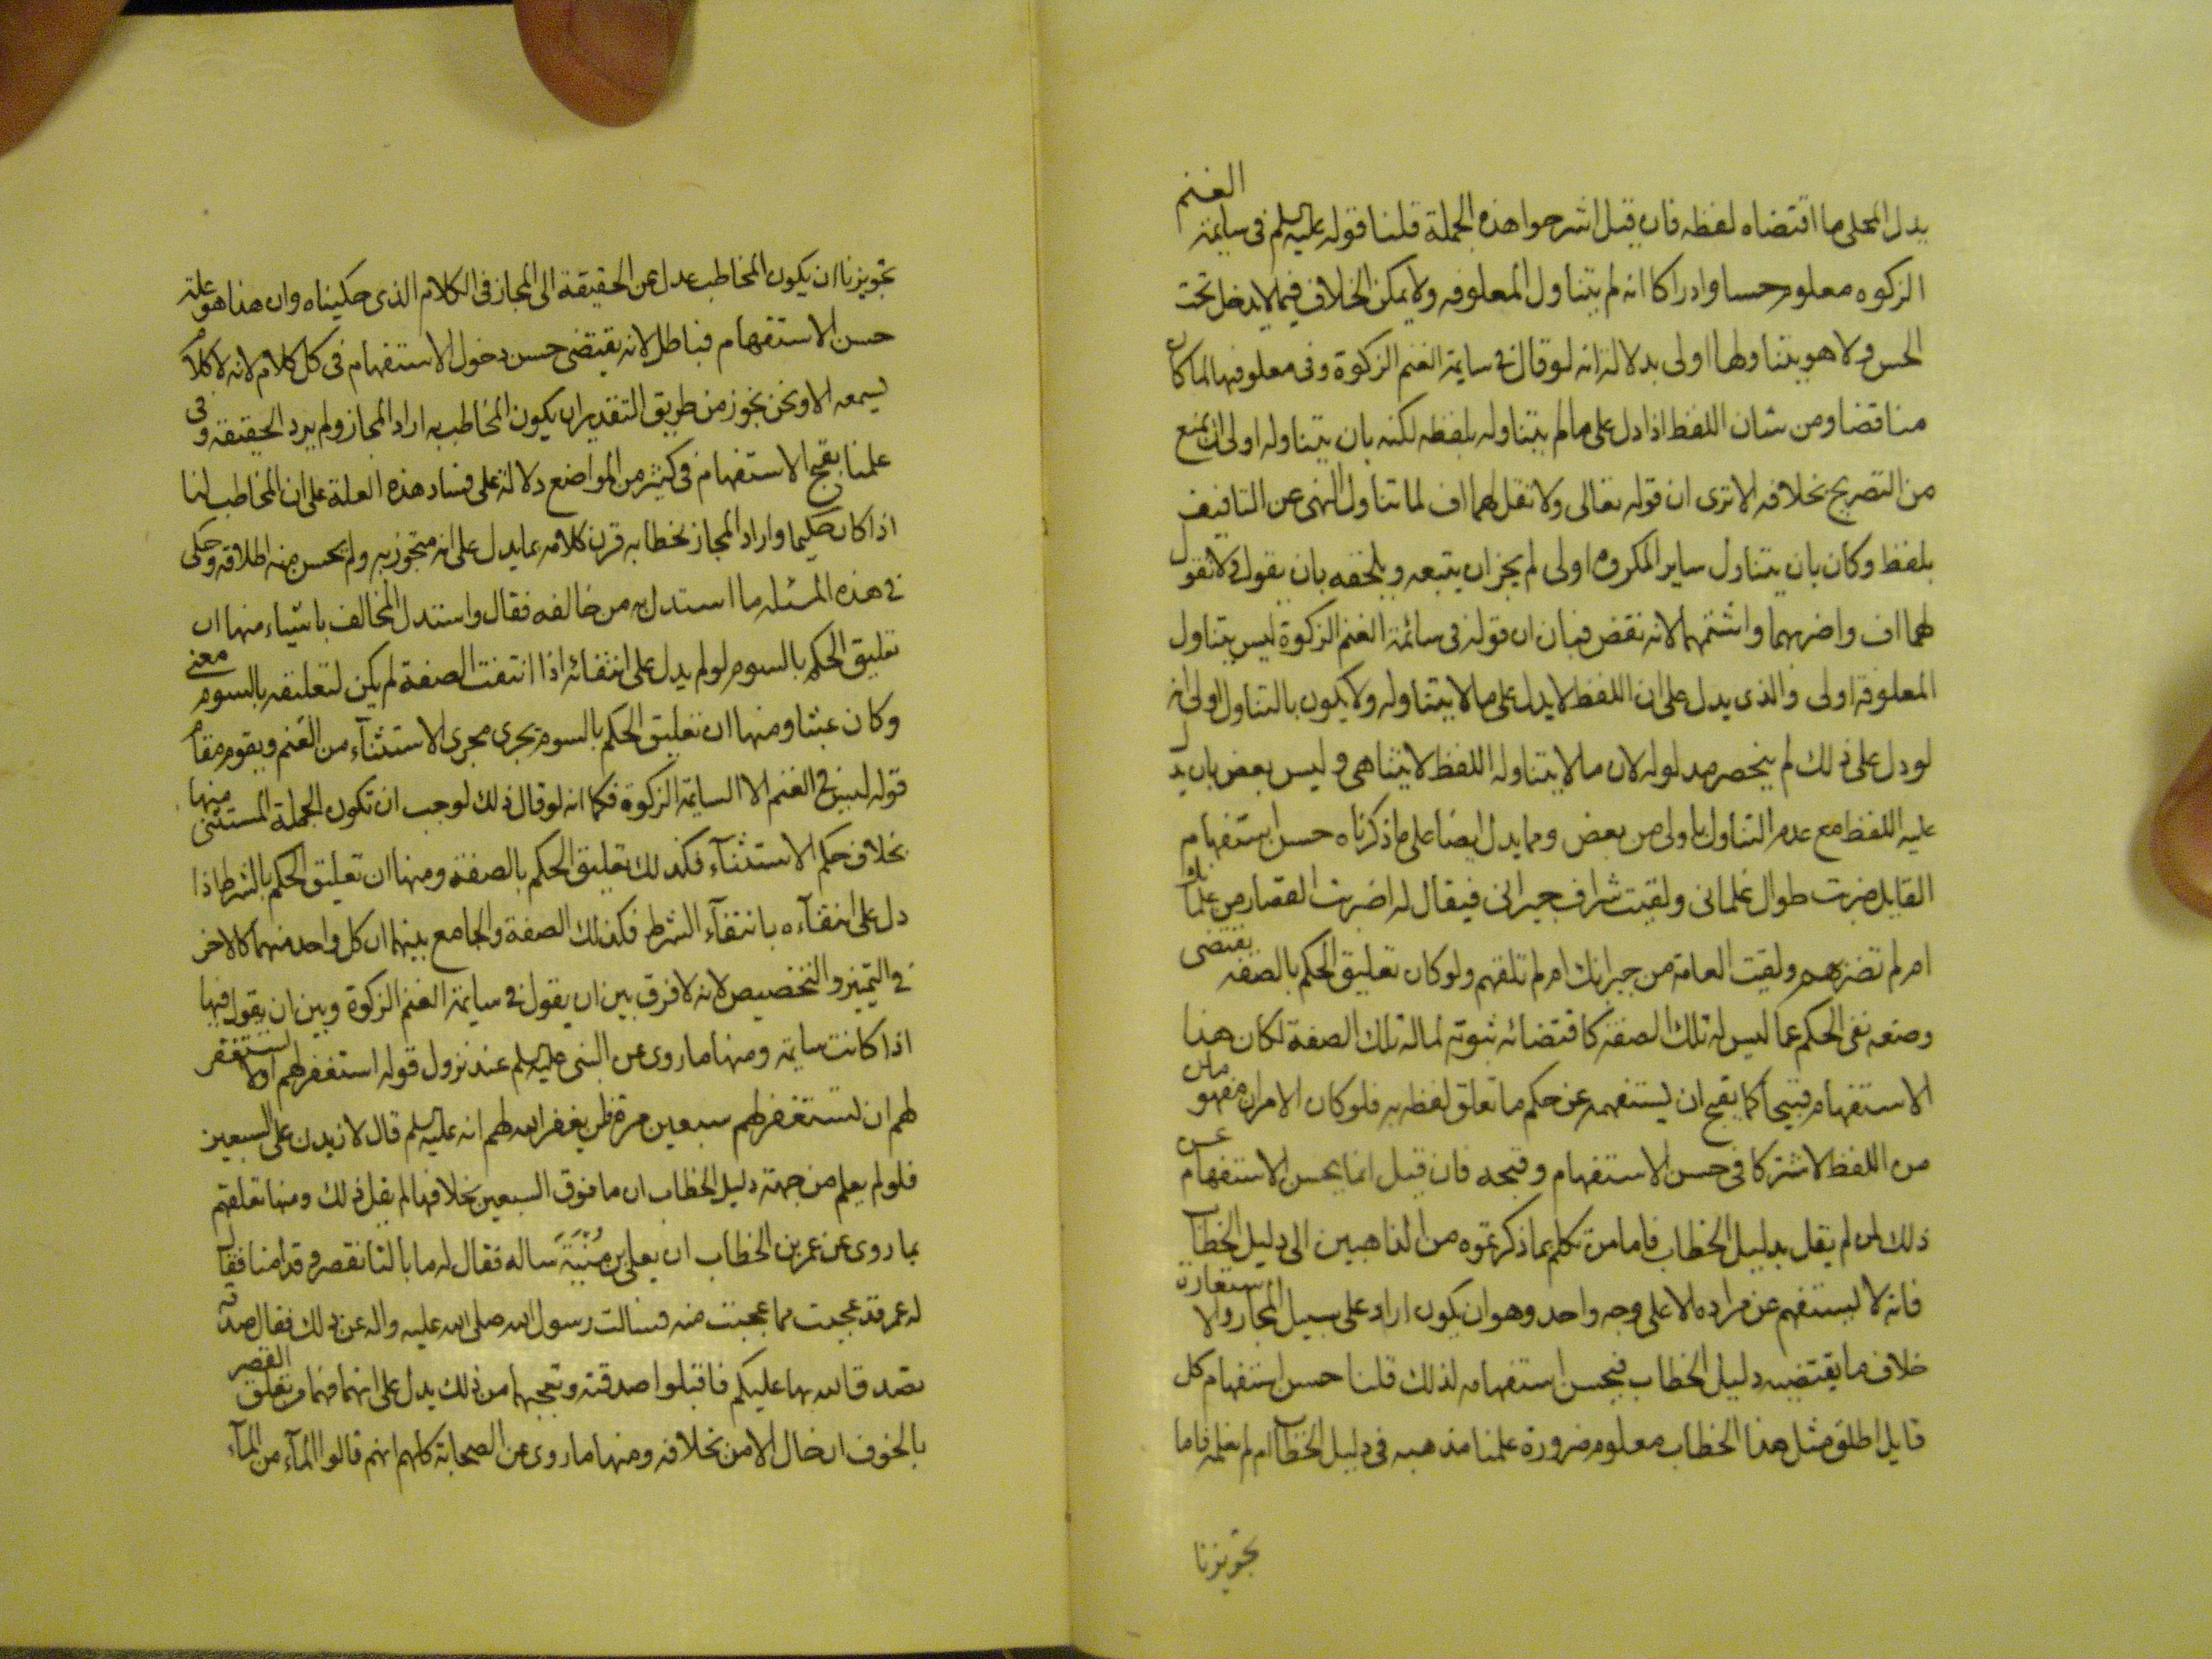 يدل الاعلى ما اقتضاه لفظه فان قيل اشرحوا هذه الجملة قلنا قوله عليه السلم فى سايمة الغنم
الزكوة معلوم حسا وادراكا انه لم يتناول المعلوفه ولا يمكن الخلاف فيما لا يدخل تحت
الحس ولا هو بتناولها اولى بدلالة انه لو قال فى سايمة الغنم الزكوة وفى معلوفتها لما كان
مناقضا ومن شان اللفظ اذا دل على ما لم يتناوله بلفظه لكنه بان يتناوله اولى ان يمنع
من التصريح بخلافه الا ترى ان قوله تعالى ولا تقل لهما اف لما تناول النهى عن التافيف
بلفظ وكان بان يتناول ساير المكروه اولى لم يجز ان يتبعه ويلحقه بان يقول ولا تقول
لهما اف واضربهما واشتمهما لانه نقض فبان ان قوله فى سائمة الغنم الزكوة ليس يتناول
المعلوفة اولى والذى يدل على ان اللفظ لا يدل على ما لا يتناوله ولا يكون بالتناول اولى انه
لو دل على ذلك لم ينحصر مدلوله لان ما لا يتناوله اللفظ لا يتناهى وليس بعض بان يدل
عليه اللفظ مع عدم التناول باولى من بعض ومما يدل ايضا على ما ذكرناه حسن استفهام
القايل ضربت طوال غلمانى ولقيت شراف جيرانى فيقال له اضربت القصار من غلمانك
ام لم تضربهم ولقيت العامة من جيرانك ام لم تلقهم ولو كان تعليق الحكم بالصفه يقتضى
وضعه نفى الحكم عما ليس له تلك الصفة كاقتضائه ثبوته لما له تلك الصفة لكان هذا
الاستفهام قبيحا كما يقبح ان يستفهمه عن حكم ما تعلق لفظه به فلو كان الامران مفهومان
من اللفظ لاشتركا فى حسن الاستفهام وقبحه فان قيل انما يحسن الاستفهام عن
ذلك لمن لم يقل بدليل الخطاب فاما من تكلم بما ذكرتموه من الذاهبين الى دليل الخطاب
فانه لا يستفهم عن مراده الا على وجه واحد وهو ان يكون اراد على سبيل المجاز والاستعارة
خلاف ما يقتضيه دليل الخطاب فيحسن استفهامه لذلك قلنا حسن استفهام كل
قايل اطلق مثل هذا الخطاب معلوم ضرورة علمنا مذهبه فى دليل الخطاب ام لم نعلمه فاما
تجويزنا
تجويزنا ان يكون المخاطب عدل عن الحقيقة الى المجاز فى الكلام الذى حكيناه وان هذا هو علة
حسن الاستفهام فباطل لانه يقتضى حسن دخول الاستفهام فى كل كلام لانه لا كلام
يسمعه الا ونحن نجوز من طريق التقدير ان يكون المخاطب به اراد المجاز ولم يرد الحقيقة وفى
علمنا بقبح الاستفهام فى كثير من المواضع دلالة على فساد هذه العلة على ان المخاطب لنا
اذا كان حكيما واراد المجاز بخطابه قرن كلامه بما يدل على انه متجوز به ولم يحسن منه اطلاقه وحكى
فى هذه المسئله ما استدل به من خالفه فقال واستدل المخالف باشياء منها ان
تعليق الحكم بالسوم لو لم يدل على انتفائه اذا انتفت الصفة لم يكن لتعليقه بالسوم معنى
وكان عبثا ومنها ان تعليق الحكم بالسوم يجرى مجرى الاستثنآء من الغنم ويقوم مقام
قوله ليس فى الغنم الا السايمة الزكوة فكما انه لو قال ذلك لوجب ان تكون الجملة المستثنى منها
بخلاف حكم الاستثنآء فكذلك تعليق الحكم بالصفة ومنها ان تعليق الحكم بالشرط اذا
دل على انتفآءه بانتفآء الشرط فكذلك الصفة والجامع بينهما ان كل واحد منهما كالاخر
فى التميز والتخصيص لانه لا فرق بين ان يقول فى سايمة الغنم الزكوة وبين ان يقول فيها
اذا كانت سايمة ومنها ما روى عن النبى عليه السلم عند نزول قوله استغفر لهم او لا تستغفر
لهم ان تستغفر لهم سبعين مرة فلن يغفر الله لهم انه عليه السلم قال لازيدن على السبعين
فلو لم يعلم من جهة دليل الخطاب ان ما فوق السبعين بخلافها لم يقل ذلك ومنها تعلقهم
بما روى عن عمر بن الخطاب ان يعلى بن مُنْيَةَ ساله فقال له ما بالنا نقصر وقد امنا فقال
له عمر قد عجبت مما عجبت منه فسالت رسول الله صلى الله عليه واله عن ذلك فقال صدقه
تصدق الله بها عليكم فاقبلوا صدقته وتعجبهما من ذلك يدل على انهما فهما من تعلق القصر
بالخوف ان حال الامن بخلافه ومنها ما روى عن الصحابة كلهم انهم قالوا المآء من المآء